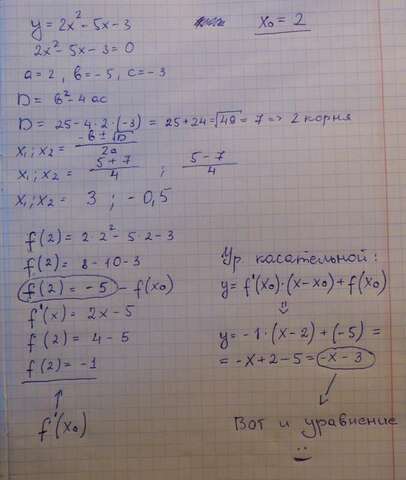 y = 2x² - 5x - 3
x₀ = 2
2x² - 5x - 3 = 0
a = 2, b = -5, c = -3
D = b² - 4ac
D = 25 - 4·2·(-3) = 25 + 24 = √49 = 7 => 2 корня
x₁; x₂ = (-b ± √D)/2a
x₁; x₂ = (5 + 7)/4 ; (5 - 7)/4
x₁; x₂ = 3 ; -0,5
f(2) = 2·2² - 5·2 - 3
f(2) = 8 - 10 - 3
f(2) = -5 - f(x₀)
f'(x) = 2x - 5
f(2) = 4 - 5
f(2) = -1
f'(x₀)
Ур касательной:
y = f'(x₀)·(x - x₀) + f(x₀)
y = -1·(x - 2) + (-5) =
= -x + 2 - 5 = -x - 3
Вот и уравнение